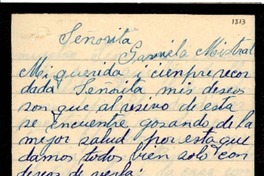 1313
Señorita
Gabriela Mistral
Mi querida i cienpre recor
dada Señorita mis deseos
son que al resivo de esta
se encuentre gosando de la
mejor salud por esta que
damos todos bien solo con
deseos de verla